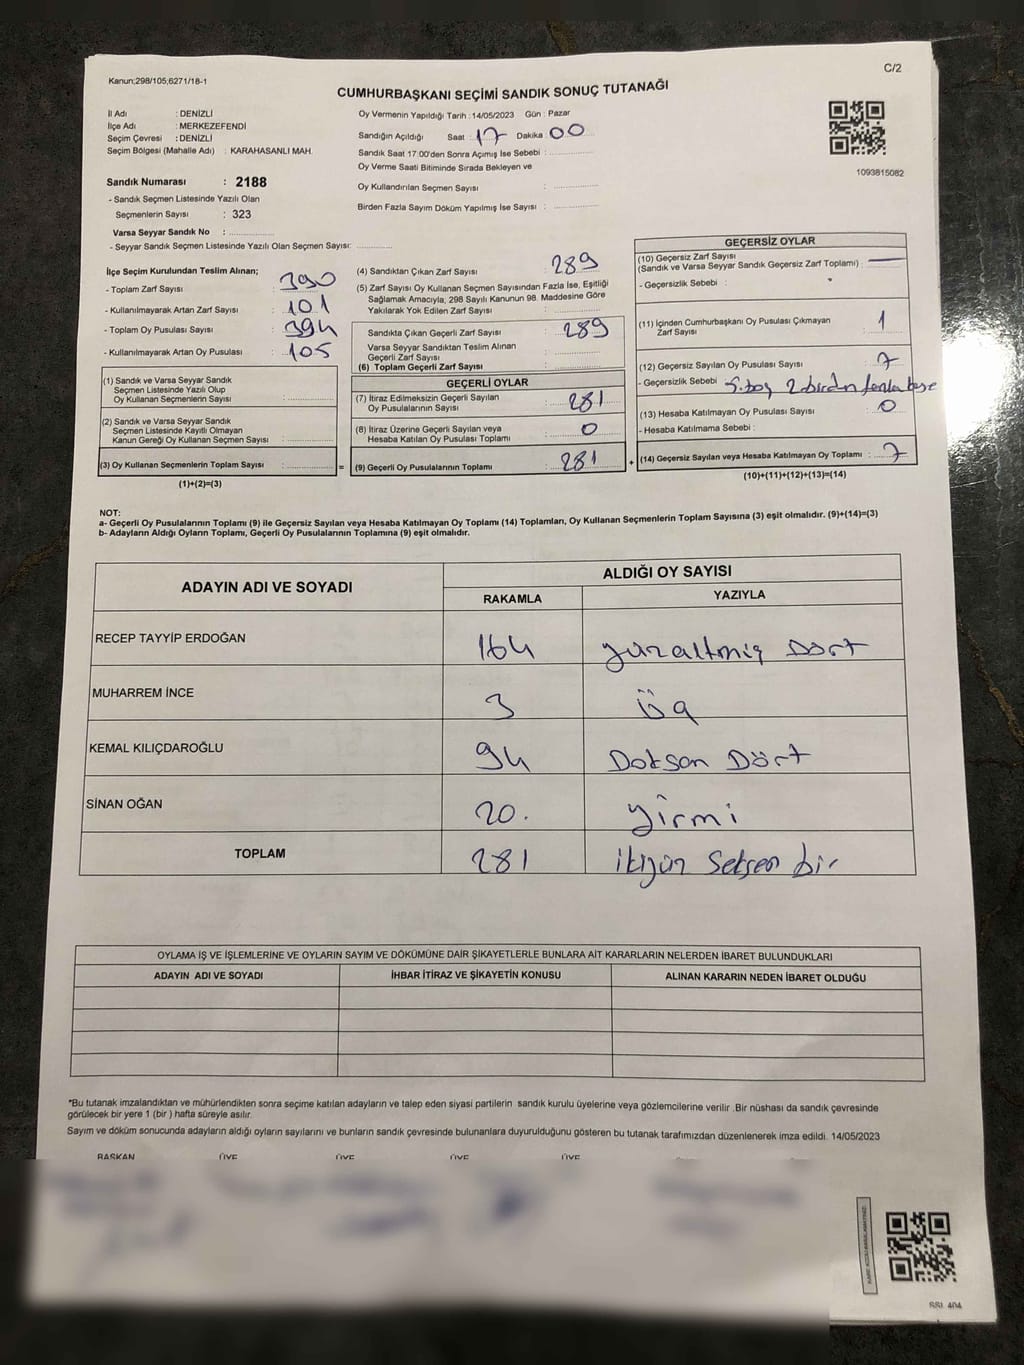 Kanun;298/105,6271/18-1
C/2
CUMHURBAŞKANI SEÇİMİ SANDIK SONUÇ TUTANAĞI
İl Adı : DENİZLİ
İlçe Adı : MERKEZEFENDİ
Seçim Çevresi : DENİZLİ
Seçim Bölgesi (Mahalle Adı) : KARAHASANLI MAH.
Sandık Numarası : 2188
- Sandık Seçmen Listesinde Yazılı Olan
Seçmenlerin Sayısı : 323
Varsa Seyyar Sandık No :
- Seyyar Sandık Seçmen Listesinde Yazılı Olan Seçmen Sayısı:
Oy Vermenin Yapıldığı Tarih :14/05/2023 Gün : Pazar
Sandığın Açıldığı Saat : 17 Dakika : 00
Sandık Saat 17:00'den Sonra Açımış İse Sebebi :
Oy Verme Saati Bitiminde Sırada Bekleyen ve
Oy Kullandırılan Seçmen Sayısı :
Birden Fazla Sayım Döküm Yapılmış İse Sayısı :
1093815082
İlçe Seçim Kurulundan Teslim Alınan;
- Toplam Zarf Sayısı : 390
- Kullanılmayarak Artan Zarf Sayısı : 101
- Toplam Oy Pusulası Sayısı : 394
- Kullanılmayarak Artan Oy Pusulası : 105
(1) Sandık ve Varsa Seyyar Sandık
Seçmen Listesinde Yazılı Olup
Oy Kullanan Seçmenlerin Sayısı :
(2) Sandık ve Varsa Seyyar Sandık
Seçmen Listesinde Kayıtlı Olmayan
Kanun Gereği Oy Kullanan Seçmen Sayısı :
(3) Oy Kullanan Seçmenlerin Toplam Sayısı :
(1)+(2)=(3)
(4) Sandıktan Çıkan Zarf Sayısı : 289
(5) Zarf Sayısı Oy Kullanan Seçmen Sayısından Fazla İse, Eşitliği
Sağlamak Amacıyla, 298 Sayılı Kanunun 98. Maddesine Göre
Yakılarak Yok Edilen Zarf Sayısı :
Sandıkta Çıkan Geçerli Zarf Sayısı : 289
Varsa Seyyar Sandıktan Teslim Alınan
Geçerli Zarf Sayısı :
(6) Toplam Geçerli Zarf Sayısı :
GEÇERLİ OYLAR
(7) İtiraz Edilmeksizin Geçerli Sayılan
Oy Pusulalarının Sayısı : 281
(8) İtiraz Üzerine Geçerli Sayılan veya
Hesaba Katılan Oy Pusulası Toplamı : 0
= (9) Geçerli Oy Pusulalarının Toplamı : 281
GEÇERSİZ OYLAR
(10) Geçersiz Zarf Sayısı
(Sandık ve Varsa Seyyar Sandık Geçersiz Zarf Toplamı) : —
- Geçersizlik Sebebi :
(11) İçinden Cumhurbaşkanı Oy Pusulası Çıkmayan
Zarf Sayısı : 1
(12) Geçersiz Sayılan Oy Pusulası Sayısı : 7
- Geçersizlik Sebebi : 5.boş 2 birden fazla
(13) Hesaba Katılmayan Oy Pusulası Sayısı : 0
- Hesaba Katılmama Sebebi :
+ (14) Geçersiz Sayılan veya Hesaba Katılmayan Oy Toplamı : 7
(10)+(11)+(12)+(13)=(14)
NOT:
a- Geçerli Oy Pusulalarının Toplamı (9) ile Geçersiz Sayılan veya Hesaba Katılmayan Oy Toplamı (14) Toplamları, Oy Kullanan Seçmenlerin Toplam Sayısına (3) eşit olmalıdır. (9)+(14)=(3)
b- Adayların Aldığı Oyların Toplamı, Geçerli Oy Pusulalarının Toplamına (9) eşit olmalıdır.
ADAYIN ADI VE SOYADI
ALDIĞI OY SAYISI
RAKAMLA YAZIYLA
RECEP TAYYİP ERDOĞAN 164 yüzaltmış Dört
MUHARREM İNCE 3 üç
KEMAL KILIÇDAROĞLU 94 Doksan Dört
SİNAN OĞAN 20. yirmi
TOPLAM 281 ikiyüz seksen bir
OYLAMA İŞ VE İŞLEMLERİNE VE OYLARIN SAYIM VE DÖKÜMÜNE DAİR ŞİKAYETLERLE BUNLARA AİT KARARLARIN NELERDEN İBARET BULUNDUKLARI
ADAYIN ADI VE SOYADI İHBAR İTİRAZ VE ŞİKAYETİN KONUSU ALINAN KARARIN NEDEN İBARET OLDUĞU
*Bu tutanak imzalandıktan ve mühürlendikten sonra seçime katılan adayların ve talep eden siyasi partilerin sandık kurulu üyelerine veya gözlemcilerine verilir .Bir nüshası da sandık çevresinde
görülecek bir yere 1 (bir ) hafta süreyle asılır.
Sayım ve döküm sonucunda adayların aldığı oyların sayılarını ve bunların sandık çevresinde bulunanlara duyurulduğunu gösteren bu tutanak tarafımızdan düzenlenerek imza edildi. 14/05/2023
BAŞKAN ÜYE ÜYE ÜYE ÜYE